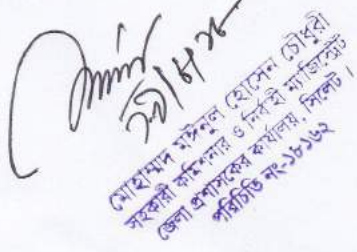 মোহাম্মদ মঈনুল হোসেন চৌধুরী
সহকারী কমিশনার ও নির্বাহী ম্যাজিস্ট্রেট
জেলা প্রশাসকের কার্যালয়, সিলেট।
পরিচিতি নং-১৮১৬২